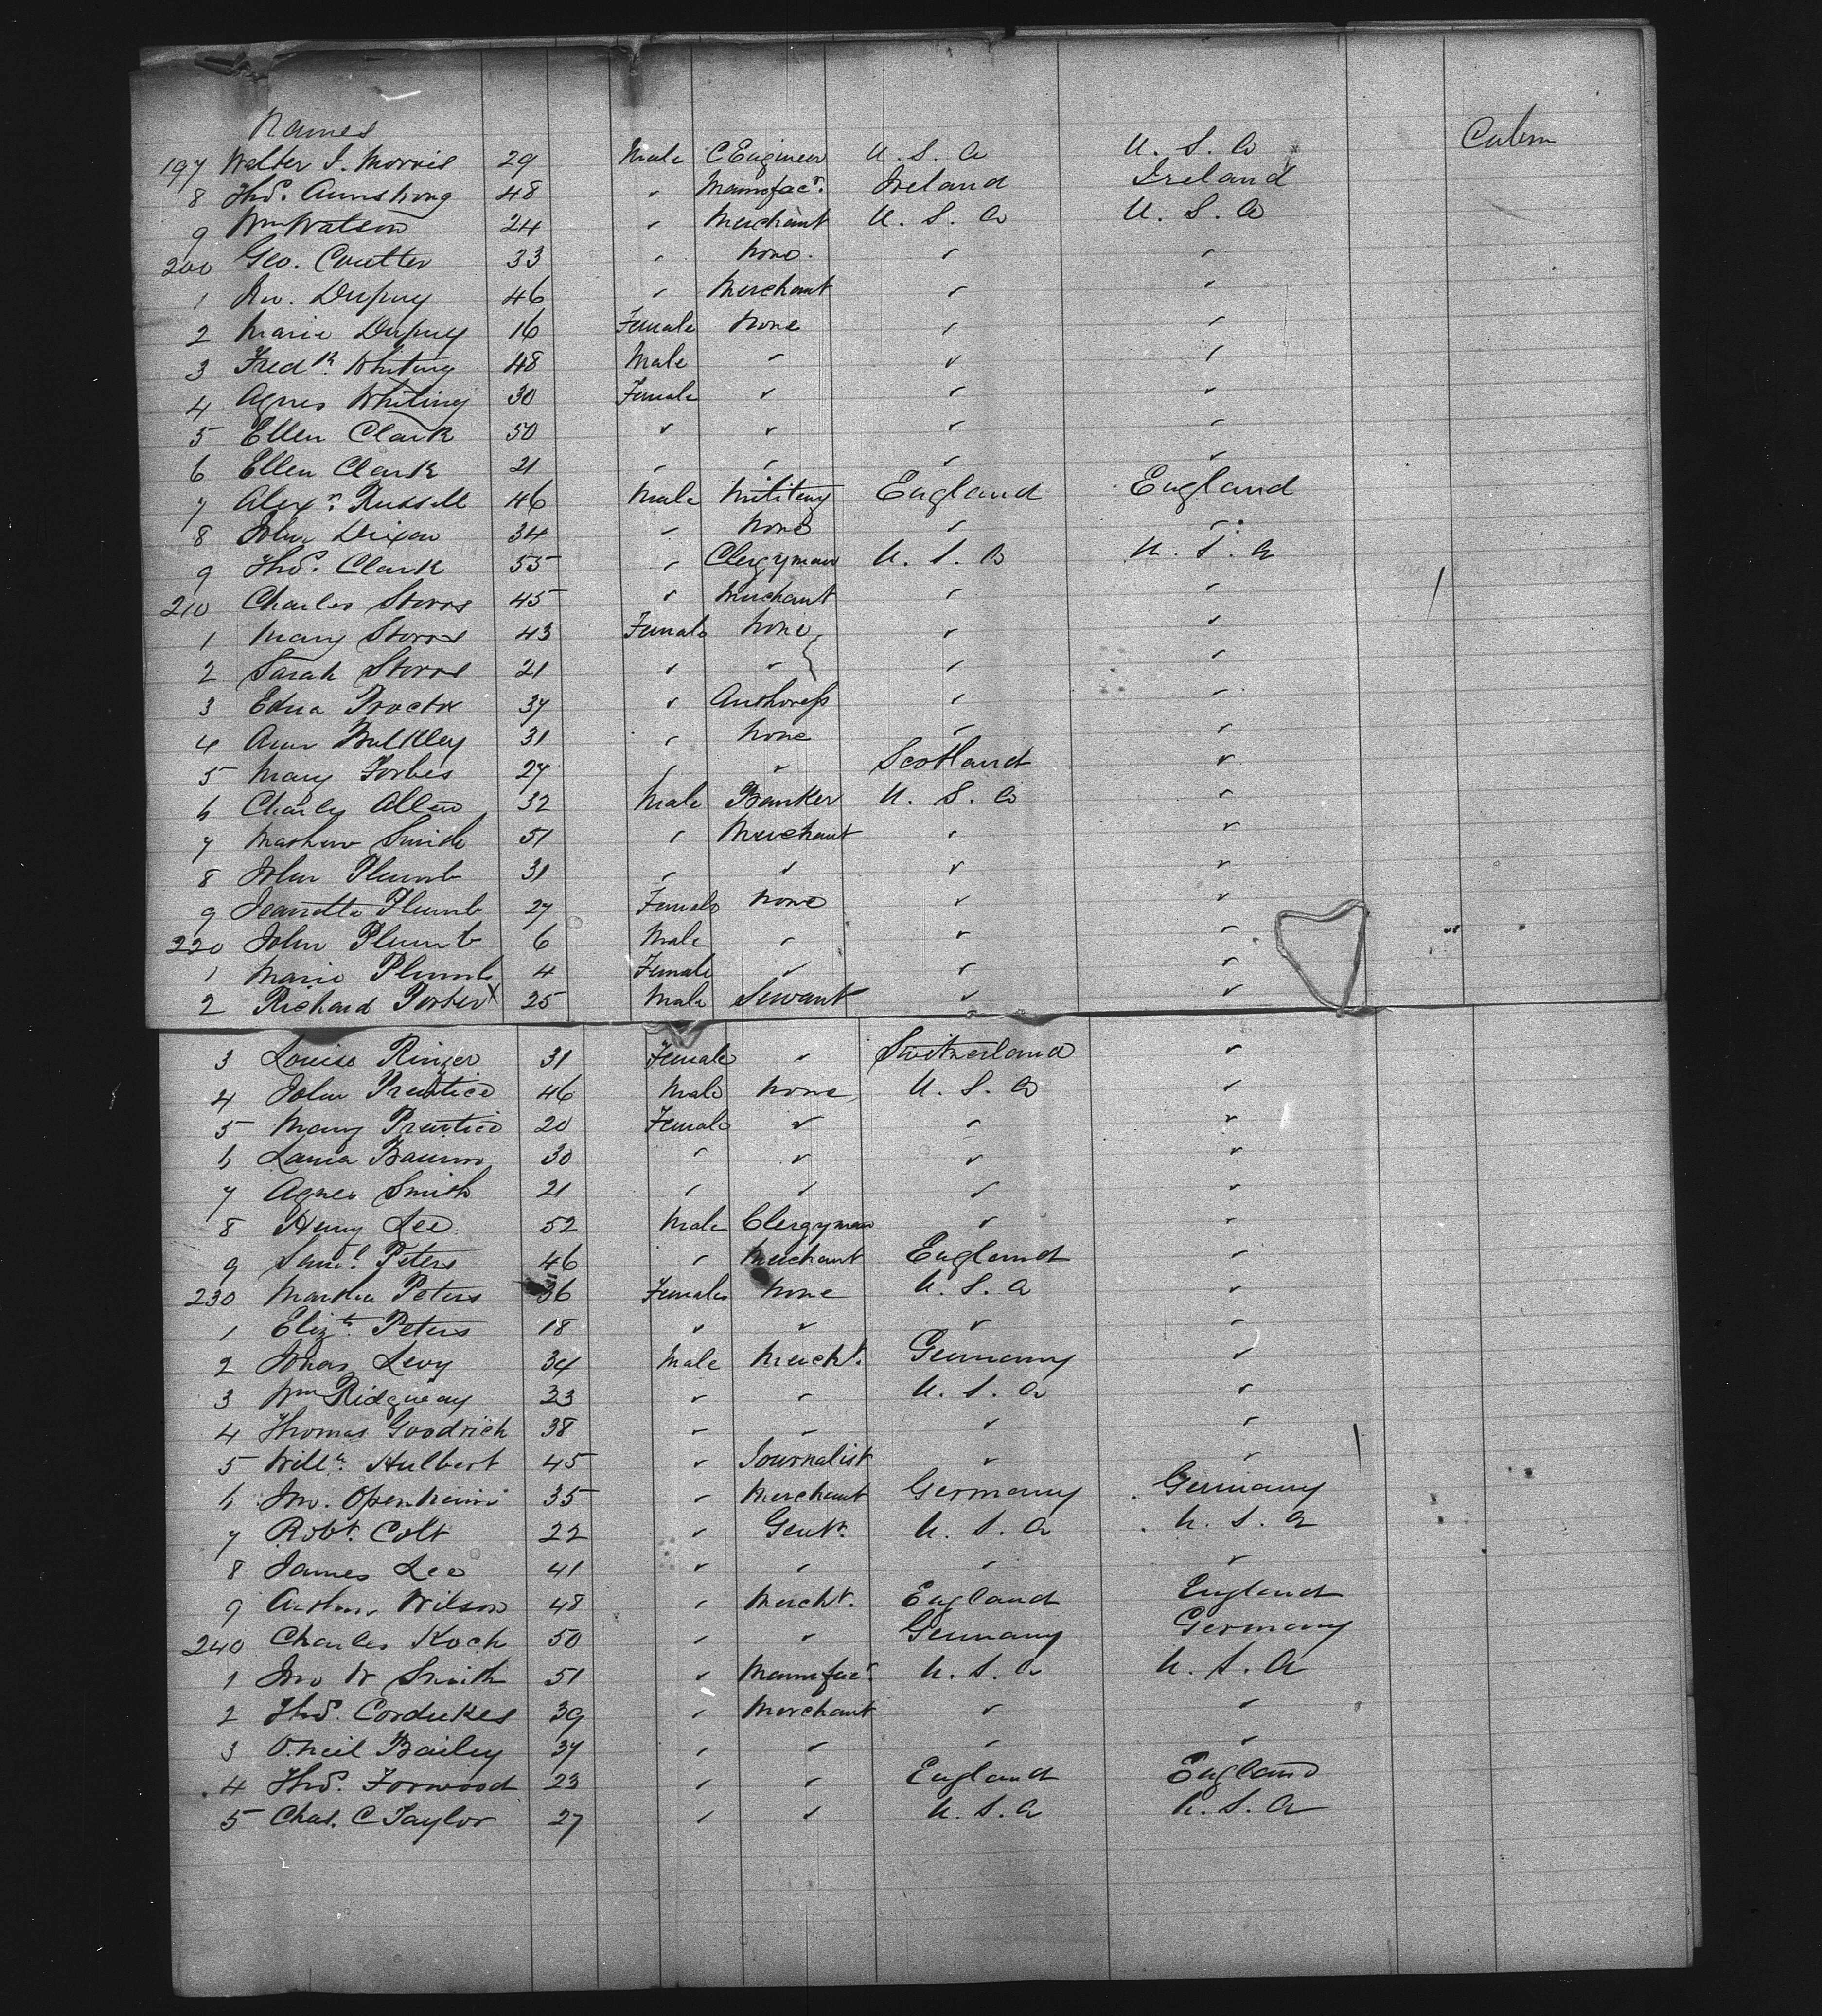 Names
197 Walter I. Morris 29 Male C Engineer U. S. A U. S. A Cabin
8 Thos. Armstrong 48 " Manufacr. Ireland Ireland
9 Wm Watson 24 " Merchant U. S. A U. S. A
200 Geo. Coulter 33 " None. " "
1 Jno. Dupuy 46 " Merchant " "
2 Marie Dupuy 16 Female None " "
3 Fredk. Whiting 48 Male " " "
4 Agnes Whiting 30 Female " " "
5 Ellen Clark 50 " " " "
6 Ellen Clark 21 " " " "
7 Alexr. Russell 46 Male Military England England
8 John Dixon 34 " None " "
9 Thos. Clark 55 " Clergyman U. S. A U. S. A
210 Charles Storrs 45 " Merchant " "
1 Mary Storrs 43 Female None " "
2 Sarah Storrs 21 " " " "
3 Edna Proctor 37 " Authoress " "
4 Ann Bulkley 31 " None " "
5 Mary Forbes 27 " " Scotland "
6 Charly Allen 32 Male Banker U. S. A "
7 Mathew Smith 51 " Merchant " "
8 John Plumb 31 " " " "
9 Jeanette Plumb 27 Female None " "
220 John Plumb 6 Male " " "
1 Marie Plumb 4 Female " " "
2 Richard Porter X 25 Male Servant " "
3 Louise Ringer 31 Female " Switzerland "
4 John Prentice 46 Male None U. S. A "
5 Mary Prentice 20 Female " " "
6 30 " " " "
7 Agnes Smith 21 " " " "
8 Henry Lee 52 Male Clergyman " "
9 Saml. Peters 46 " Merchant England "
230 Martha Peters 36 Female None U. S. A "
1 Elizth. Peters 18 " " " "
2 Jonas Levy 34 Male Mercht. Germany "
3 Wm Ridgway 23 " " U. S. A "
4 Thomas Goodrich 38 " " " "
5 Willm. Hulbert 45 " Journalist " "
6 Jno. Openheim 35 " Merchant Germany Germany
7 Robt. Colt 22 " Gentn. U. S. A U. S. A
8 James Lee 41 " " " "
9 Arthur Wilson 48 " Mercht. England England
240 Charles Koch 50 " " Germany Germany
1 Jno W Smith 51 " Manufacr. U. S. A U. S. A
2 Thos. Cordukes 39 " Merchant " "
3 O.Neil Bailey 37 " " " "
4 Thos. Forwood 23 " " England England
5 Chas. C Taylor 27 " " U. S. A U. S. A